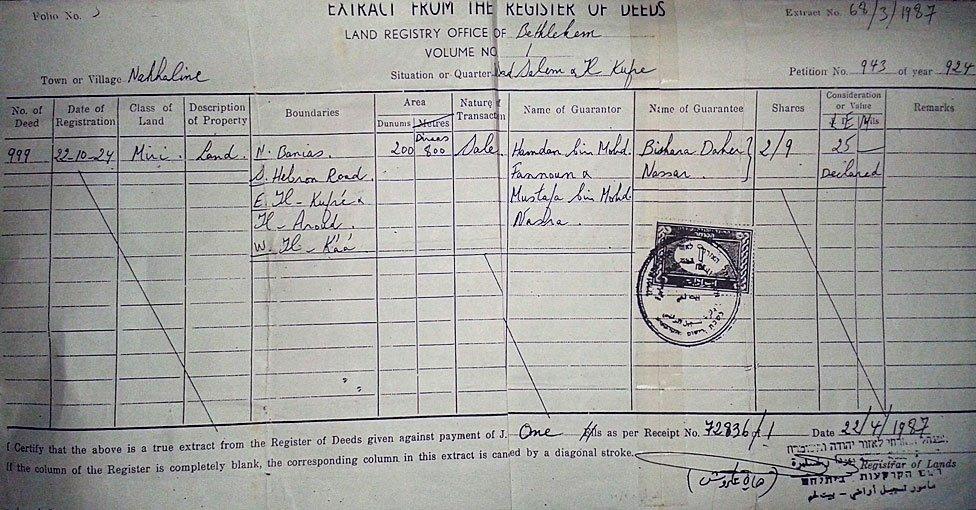 EXTRACT FROM THE REGISTER OF DEEDS
Folio No.
Extract No. 68/3/1987
LAND REGISTRY OFFICE OF Bethlehem
VOLUME NO. 1
Town or Village Nahhaline
Situation or Quarter Wad Salem & Kh Kufre
Petition No. 943 of year 924
No. of Deed
Date of Registration
Class of Land
Description of Property
Boundaries
Area
Dunums
Metres
Draas
Nature of Transaction
Name of Guarantor
Name of Guarantee
Shares
Consideration or Value
Remarks
999 22-10-24 Miri. Land. N. Banias. 200 800 Sale. Hamdan bin Mohd. Bishara Daher 2/9 25
S. Hebron Road. Fannoun & Nassar Declared
E. Kh-Kufré & Mustafa bin Mohd.
Nashra.
W.
I Certify that the above is a true extract from the Register of Deeds given against payment of J. One as per Receipt No. 72836 Date 22/4/1987
If the column of the Register is completely blank, the corresponding column in this extract is canced by a diagonal stroke.
Registrar of Lands
הקרקעות
مأمور تسجيل أراضي - بيت لحم